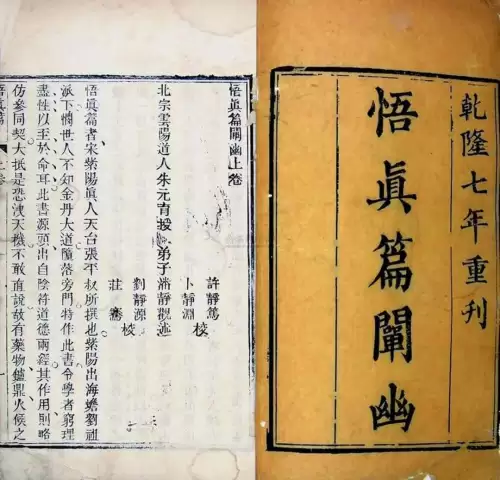 乾隆七年重刊
悟眞篇闡幽
悟眞篇闡幽上卷
許靜篤
北宗雲陽道人朱元育授 弟子潘靜觀述
卜靜淵 校
劉靜源
莊 校
悟眞篇者宋紫陽眞人天台張平叔所撰也紫陽出海蟾劉祖
派下憫世人不知金丹大道墮落旁門特作此書令學者窮理
盡性以至於命耳此書源頭出自陰符道德兩經其作用則略
仿參同契大抵是恐洩天機不敢直說故有藥物鑪鼎火候之